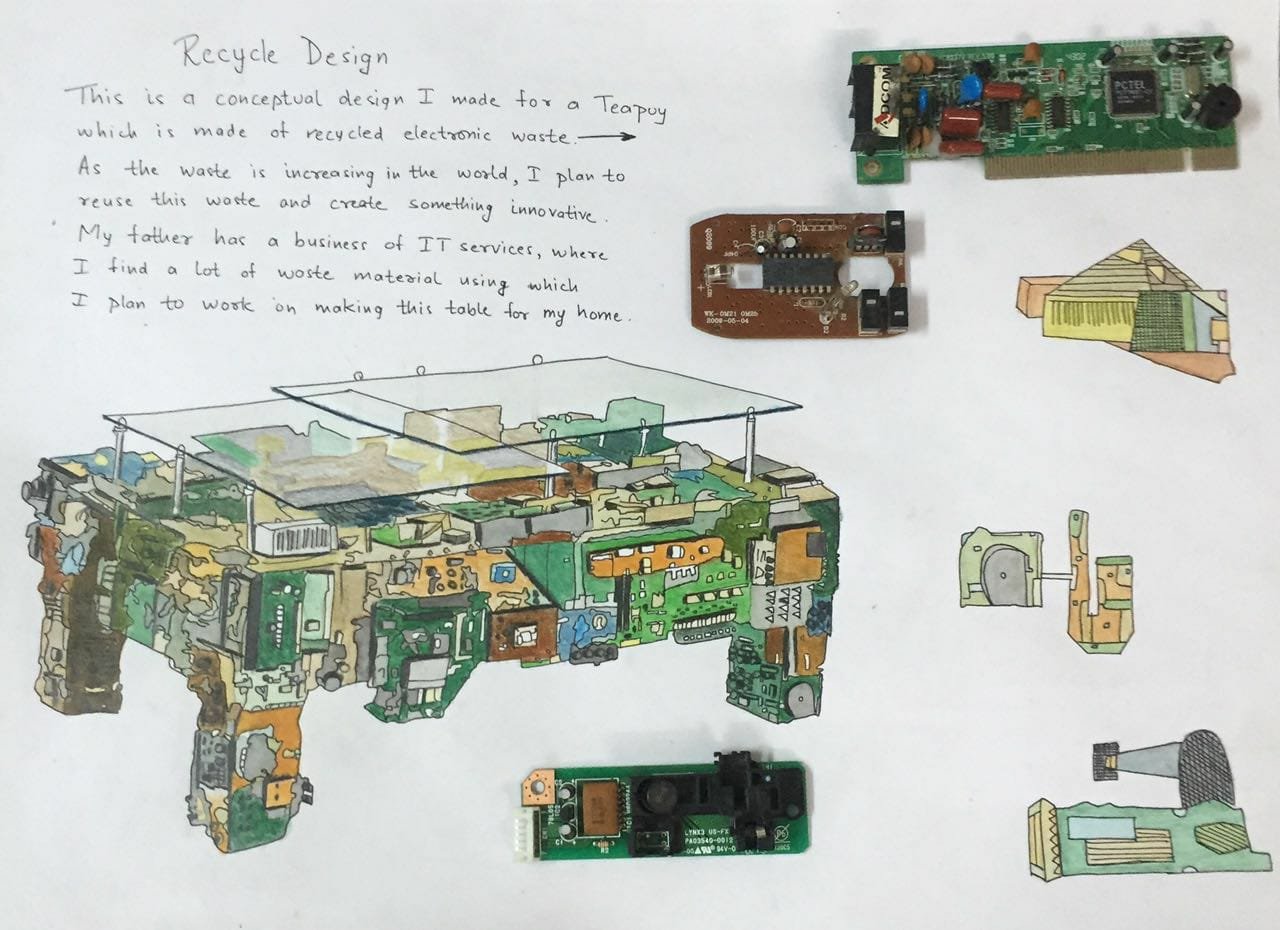 Recycle Design
This is a conceptual design I made for a Teapuy
which is made of recycled electronic waste.
As the waste is increasing in the world, I plan to
reuse this waste and create something innovative.
My father has a business of IT services, where
I find a lot of waste material using which
I plan to work on making this table for my home.
ADCOM
PCTEL
WK-0M21 0M25
2009-05-04
LYNX3 US-FX
PA03540-D012
94V-0